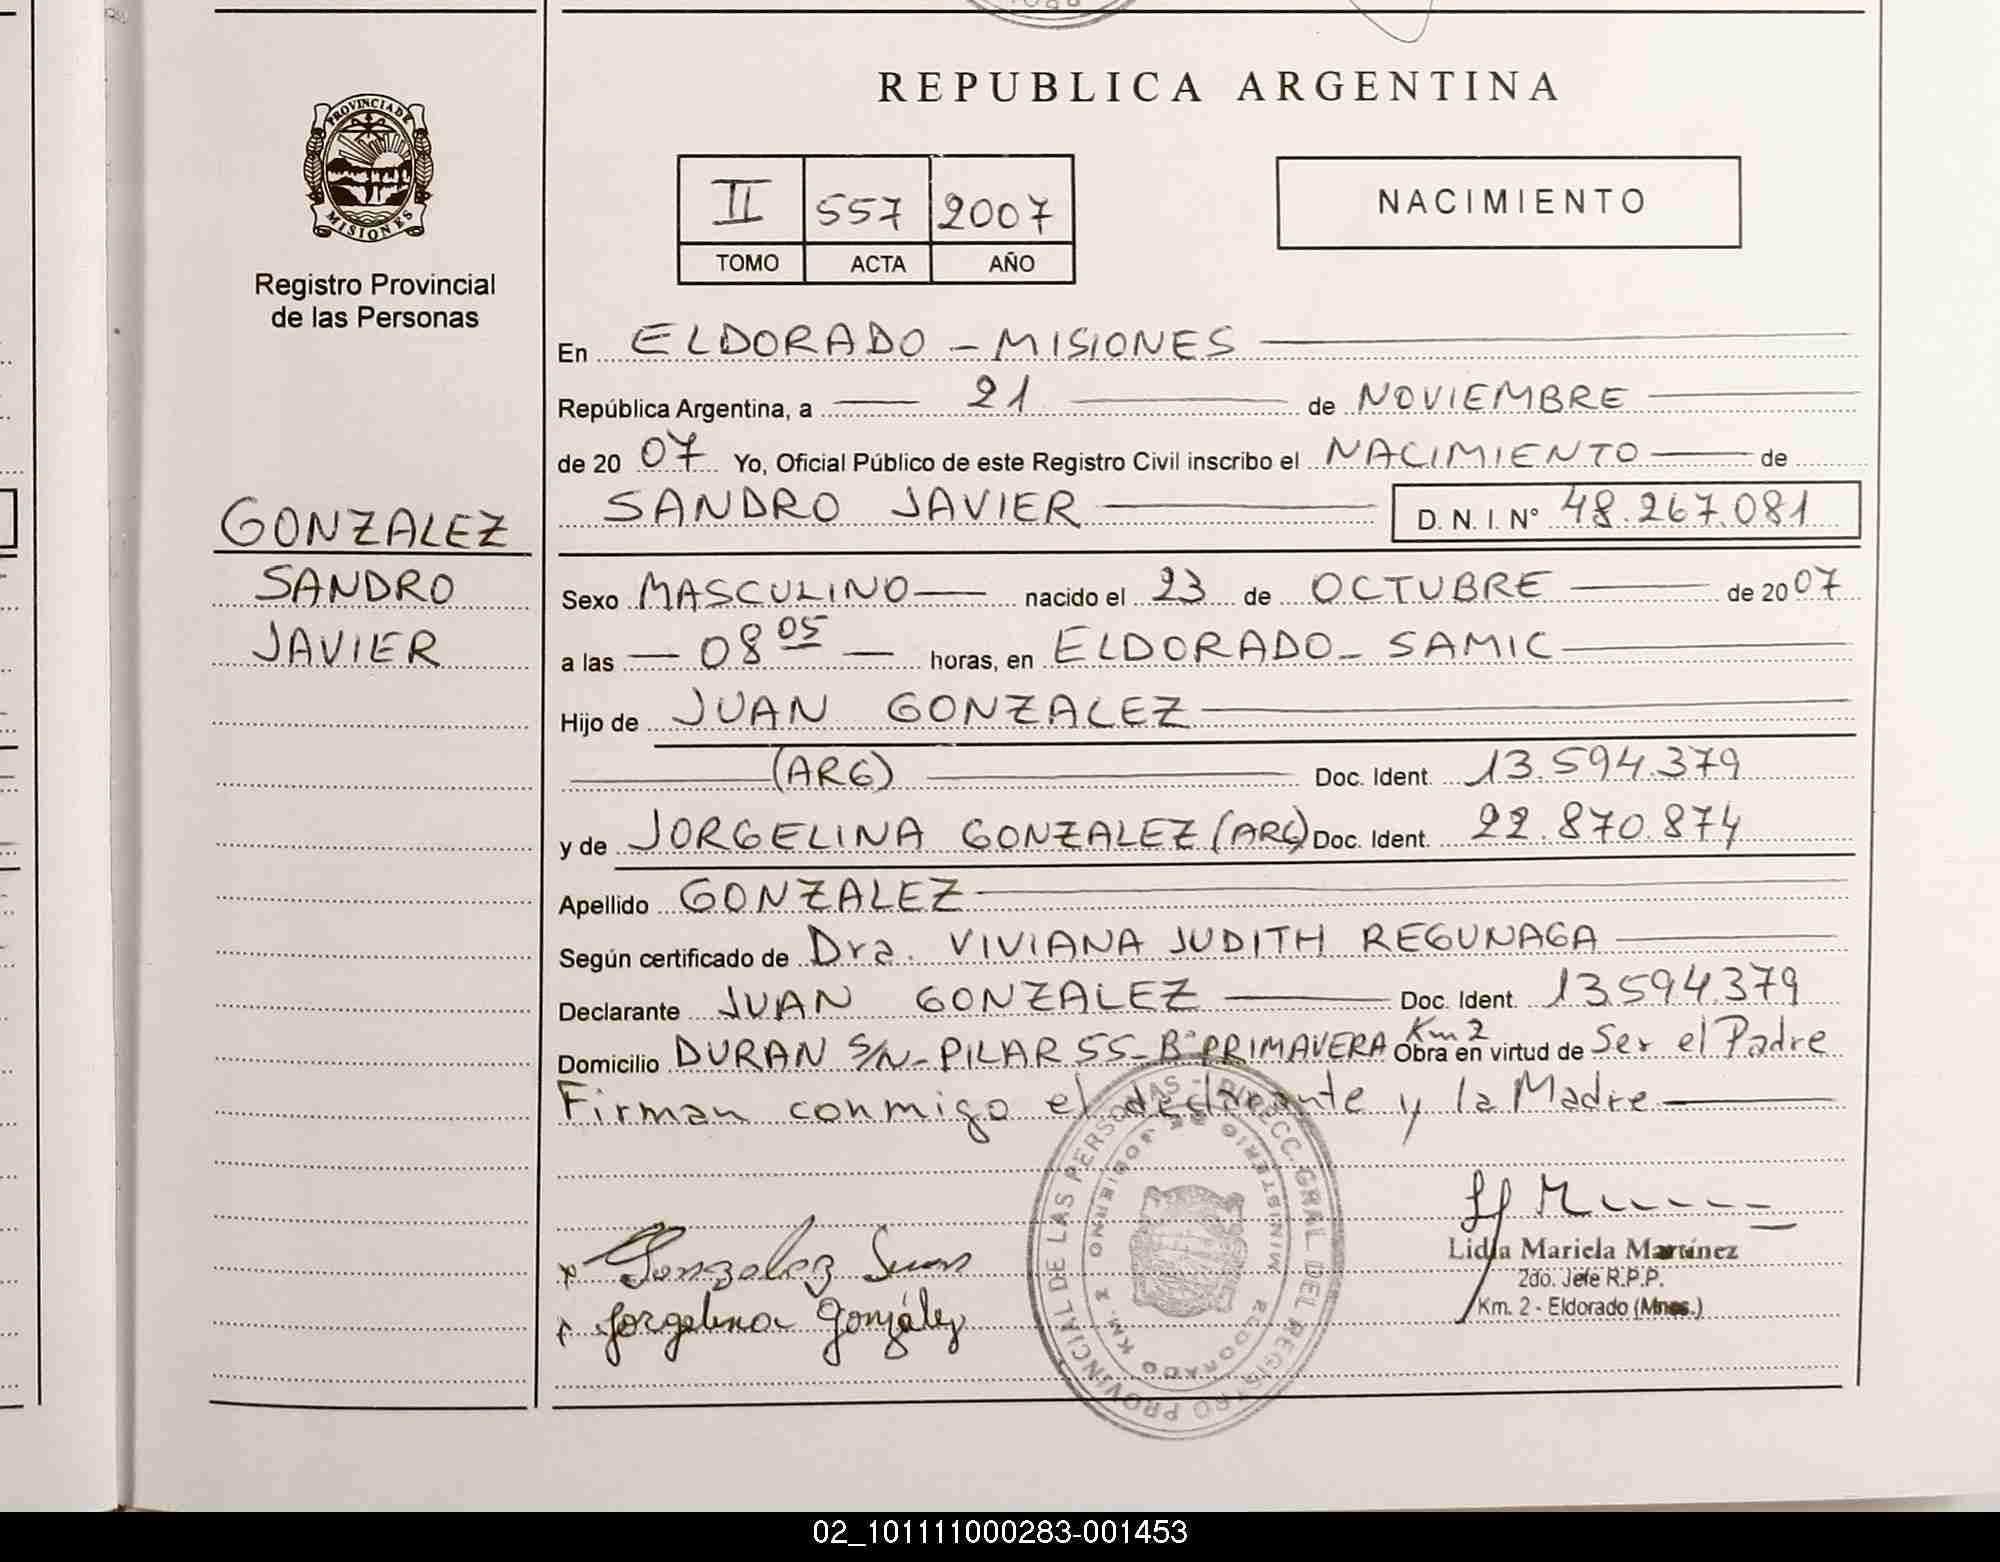 REPUBLICA ARGENTINA
PROVINCIA DE
MISIONES
Registro Provincial
de las Personas
II 557 2007
TOMO ACTA AÑO
NACIMIENTO
En ELDORADO - MISIONES
República Argentina, a 21 de NOVIEMBRE
de 20 07 Yo, Oficial Público de este Registro Civil inscribo el NACIMIENTO de
SANDRO JAVIER D. N. I. N° 48.267.081
GONZALEZ
SANDRO
JAVIER
Sexo MASCULINO nacido el 23 de OCTUBRE de 20 07
a las 08 05 horas, en ELDORADO - SAMIC
Hijo de JUAN GONZALEZ
(ARG) Doc. Ident. 13.594.379
y de JORGELINA GONZALEZ (ARG) Doc. Ident. 22.870.874
Apellido GONZALEZ
Según certificado de Dra. VIVIANA JUDITH REGUNAGA
Declarante JUAN GONZALEZ Doc. Ident. 13.594.379
Domicilio DURAN S/N - PILAR 55 - B° PRIMAVERA Km 2 Obra en virtud de Ser el Padre
Firman conmigo el declarante y la Madre
Gonzalez Juan
Jorgelina González
REGISTRO PROVINCIAL DE LAS PERSONAS - DIRECC. GRAL. DEL
MINISTERIO DE GOBIERNO
ELDORADO KM. 2
Lidia Mariela Martínez
2do. Jefe R.P.P.
Km. 2 - Eldorado (Mnes.)
02_101111000283-001453